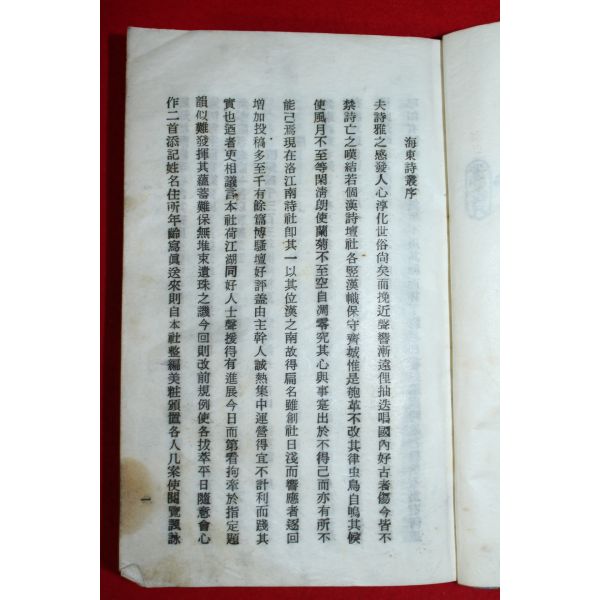 海東詩叢序
夫詩雅之感發人心淳化世俗尙矣而挽近聲響漸遠俚抽迭唱國內好古者傷今皆不
禁詩亡之嘆結若個漢詩壇社各竪漢幟保守齊城惟是匏革不改其律虫鳥自鳴其候
使風月不至等閑淸朗使蘭菊不至空自凋零究其心與事寔出於不得已而亦有所不
能已焉現在洛江南詩社卽其一以其位漢之南故得扁名雖創社日淺而響應者逐回
增加投稿多至千有餘篇博騷壇好評盖由主幹人誠熱集中運營得宜不計利而踐其
實也迺者更相議言本社荷江湖同好人士聲援得有進展今日而第看拘牽於指定題
韻似難發揮其蘊蓄難保無堆束遺珠之譏今回則改前規例使各拔萃平日隨意會心
作二首添記姓名住所年齡寫眞送來則自本社整編美粧頒置各人几案使閱覽諷詠
一